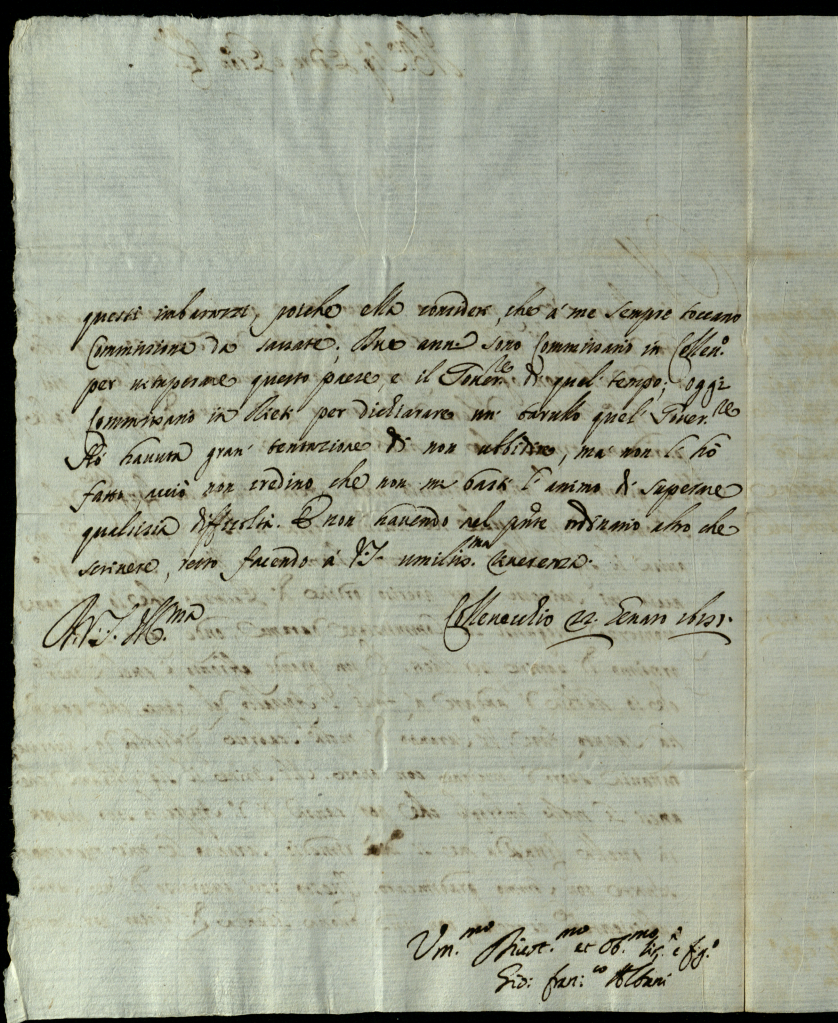 questi imbarazzi, poiche ella consideri, che à me sempre toccano
Commissione da sassate; Due anni sono Commissario in Collen.º
per ricuperare questo paese, e il Gover.re di quel tempo; oggi
Commissario in Rieti per dichiarare un' quel Gover.re
Hò havuta gran' tentazione di non ubbidire, ma non l' hò
fatto, acciò non credino che non mi basti l' animo di superare
qualsisia difficoltà. E non havendo nel pñte ordinario altro che
scrivere, resto facendo à V.S. umiliss.ma riverenza.
D. V. S. Ill.ma Collevecchio 22. Genaro
Um.mo et Ob.mo
Gio: Fran.co Albani